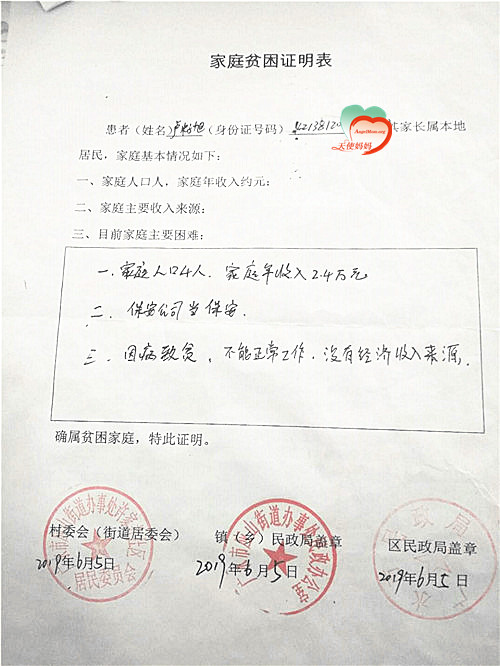 家庭贫困证明表
患者（姓名）卢 旭（身份证号码）4213812 其家长属本地
AngelMom.org
天使妈妈
居民，家庭基本情况如下：
一、家庭人口人，家庭年收入约元：
二、家庭主要收入来源：
三、目前家庭主要困难：
一、家庭人口4人．家庭年收入2.4万元
二、保安公司当保安．
三、因病致贫，不能正常工作．没有经济收入来源．
确属贫困家庭，特此证明。
村委会（街道居委会） 镇（乡）民政局盖章 区民政局盖章
2019年6月5日 2019年6月5日 2019年6月5日
街道办事处许家 区
居民委员会
山街道办事处 政办公室
政局